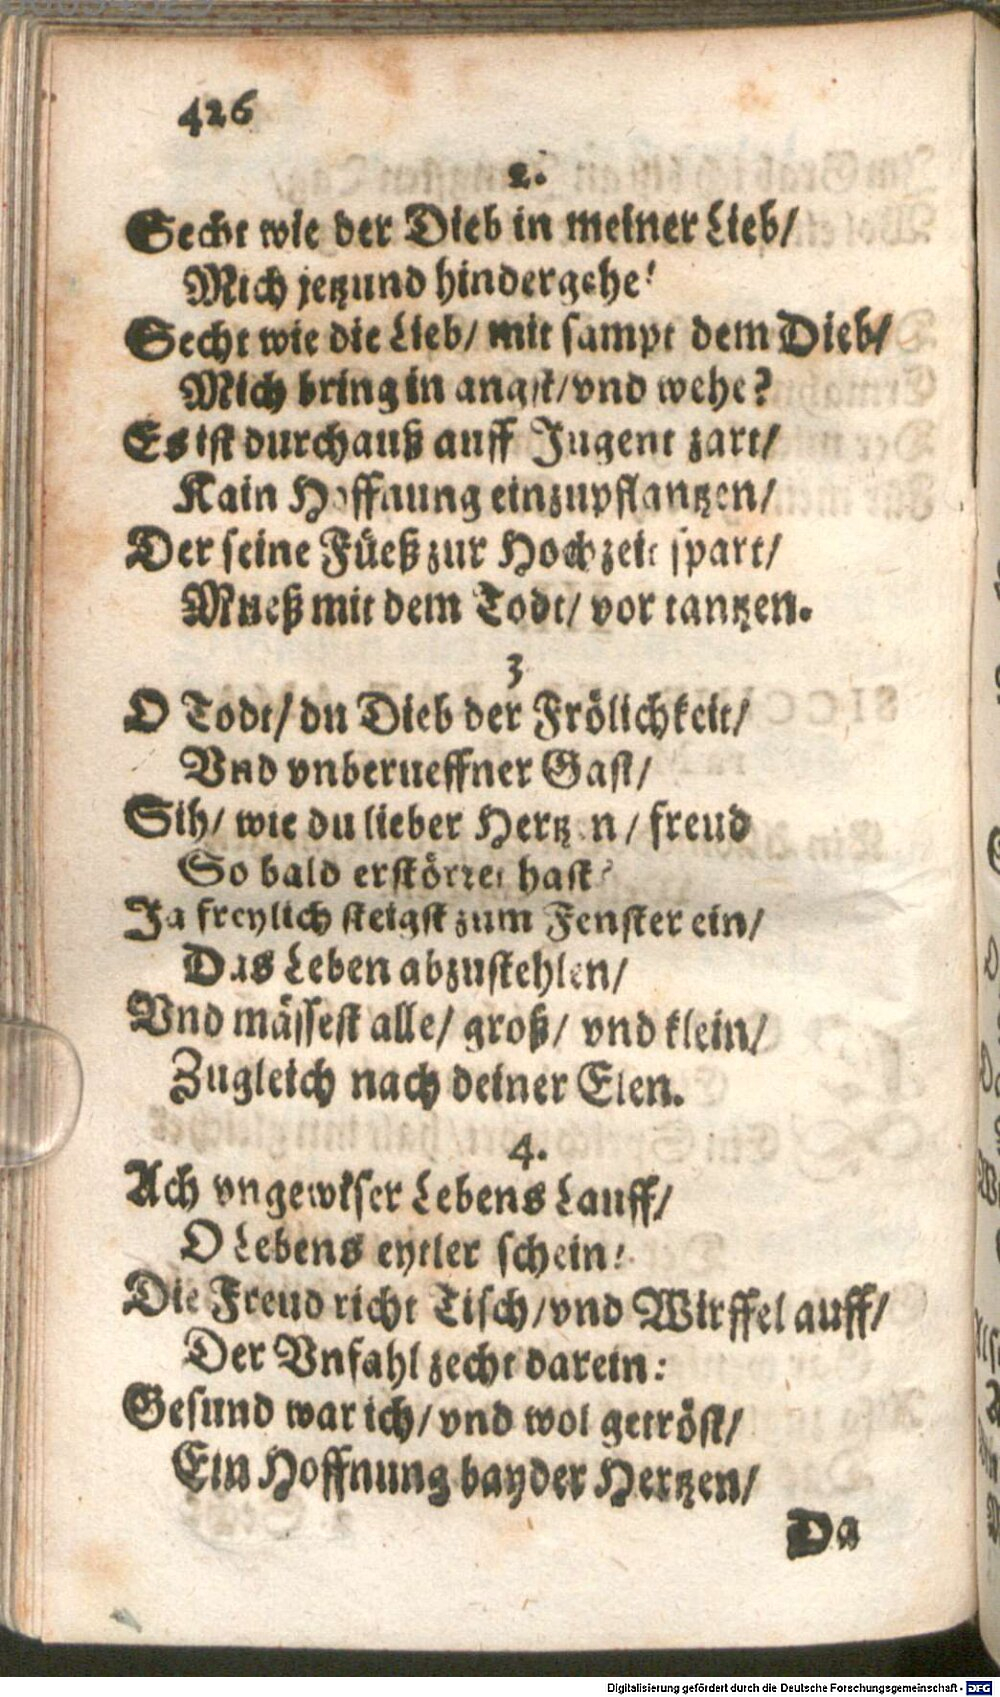 426
2.
Secht wie der Dieb in meiner Lieb/
Mich jetzund hindergehe!
Secht wie die Lieb/ mit sampt dem Dieb/
Mich bring in angst/ vnd wehe?
Es ist durchauß auff Jugent zart/
Kain Hoffnung einzupflantzen/
Der seine Füeß zur Hochzeit spart/
Mueß mit dem Todt/ vor tantzen.
3
O Todt/ du Dieb der Frölichkeit/
Vnd vnberueffner Gast/
Sih/ wie du lieber Hertzen/ freud
So bald erstörret hast?
Ja freylich steigst zum Fenster ein/
Das Leben abzustehlen/
Vnd mässest alle/ groß/ vnd klein/
Zugleich nach deiner Elen.
4.
Ach vngewiser Lebens Lauff/
O Lebens eytler schein!
Die Freud richt Tisch/ vnd Wirffel auff/
Der Vnfahl zecht darein:
Gesund war ich/ vnd wol getröst/
Ein Hoffnung bayder Hertzen/
Da
Digitalisierung gefördert durch die Deutsche Forschungsgemeinschaft - DFG